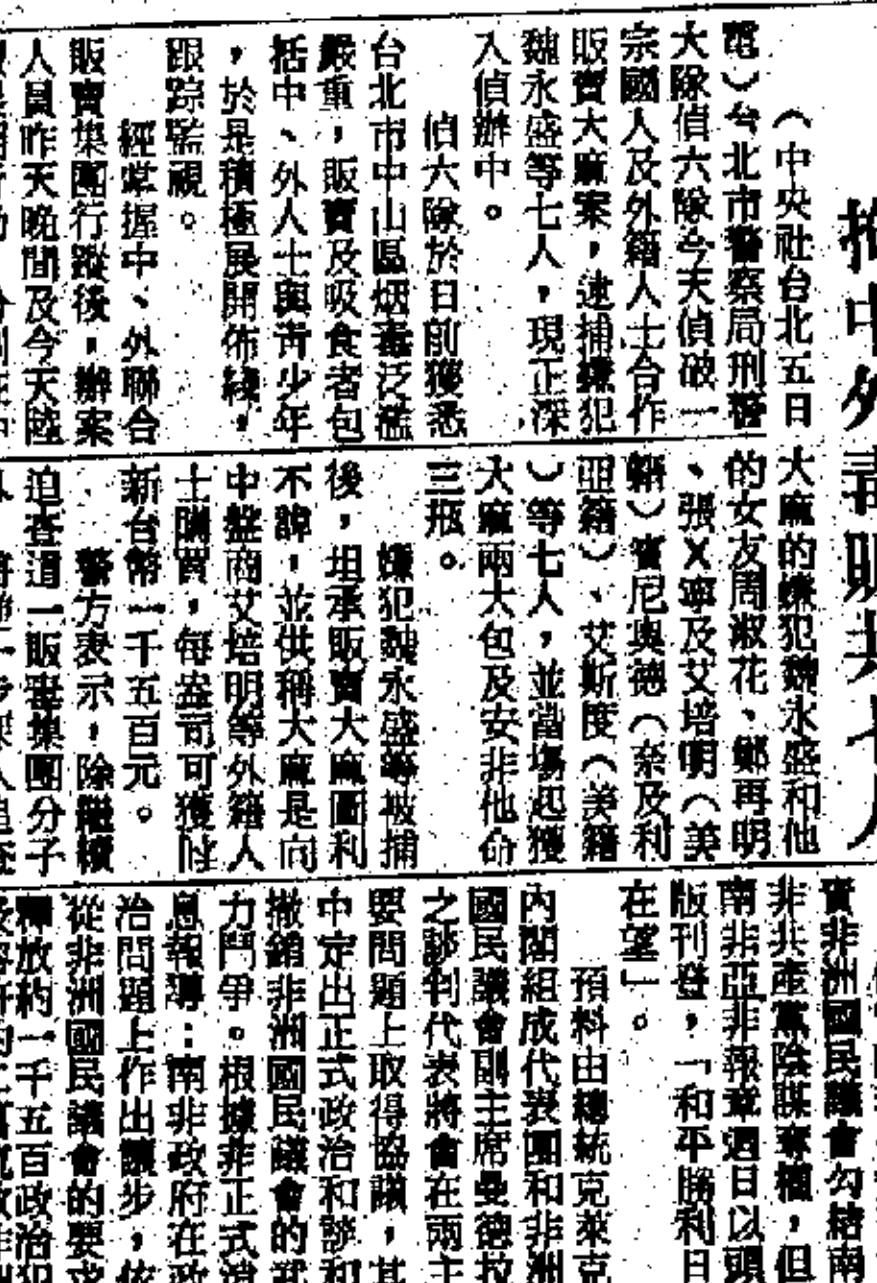 拘中外毒販共七人
（中央社台北五日
電）台北市警察局刑警
大隊偵六隊今天偵破一
宗國人及外籍人士合作
販賣大麻案，逮捕嫌犯
魏永盛等七人，現正深
入偵辦中。
偵六隊於日前獲悉
台北市中山區烟毒泛濫
嚴重，販賣及吸食者包
括中、外人士與青少年
，於是積極展開佈綫，
跟踪監視。
經掌握中、外聯合
販賣集團行蹤後，辦案
人員昨天晚間及今天陸
大麻的嫌犯魏永盛和他
的女友周淑花、鄭再明
、張X寧及艾培明（美
籍）賓尼奧德（奈及利
亞籍）、艾斯度（美籍
）等七人，並當場起獲
大麻兩大包及安非他命
三瓶。
嫌犯魏永盛等被捕
後，坦承販賣大麻圖利
不諱，並供稱大麻是向
中盤商艾培明等外籍人
士購買，每盎司可獲利
新台幣一千五百元。
警方表示，除繼續
追查這一販毒集團分子
實非洲國民議會勾結南
非共產黨陰謀奪權，但
南非亞非報章週日以頭
版刊登，「和平勝利日
在望」。
預料由總統克萊克
內閣組成代表團和非洲
國民議會副主席曼德拉
之談判代表將會在兩主
要問題上取得協議，其
中定出正式政治和談和
撤銷非洲國民議會的武
力鬥爭。根據非正式消
息報導：南非政府在政
治問題上作出讓步，依
從非洲國民議會的要求
釋放約一千五百政治犯